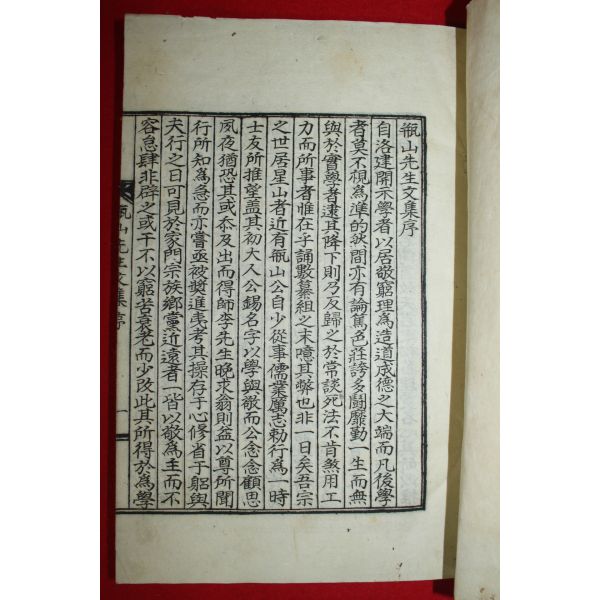 瓶山先生文集序
自洛建開示學者以居敬窮理爲造道成德之大端而凡後學
者莫不視爲準的然間亦有論篤色莊誇多鬪靡勤一生而無
與於實學者逮其降下則乃反歸之於常談死法不肯煞用工
力而所事者惟在乎誦數纂組之末噫其弊也非一日矣吾宗
之世居星山者近有瓶山公自少從事儒業厲志勅行爲一時
士友所推望盖其初大人公錫名字以學與敬而公念念顧思
夙夜猶恐其或忝及出而得師李先生晩求翁則益以尊所聞
行所知爲急而亦嘗亟被奬進夷考其操存于心修省于躬與
夫行之日可見於家門宗族鄕黨近遠者一皆以敬爲主而不
容怠肆非辟之或干不以窮苦衰老而少改此其所得於爲學
瓶山先生文集序 一